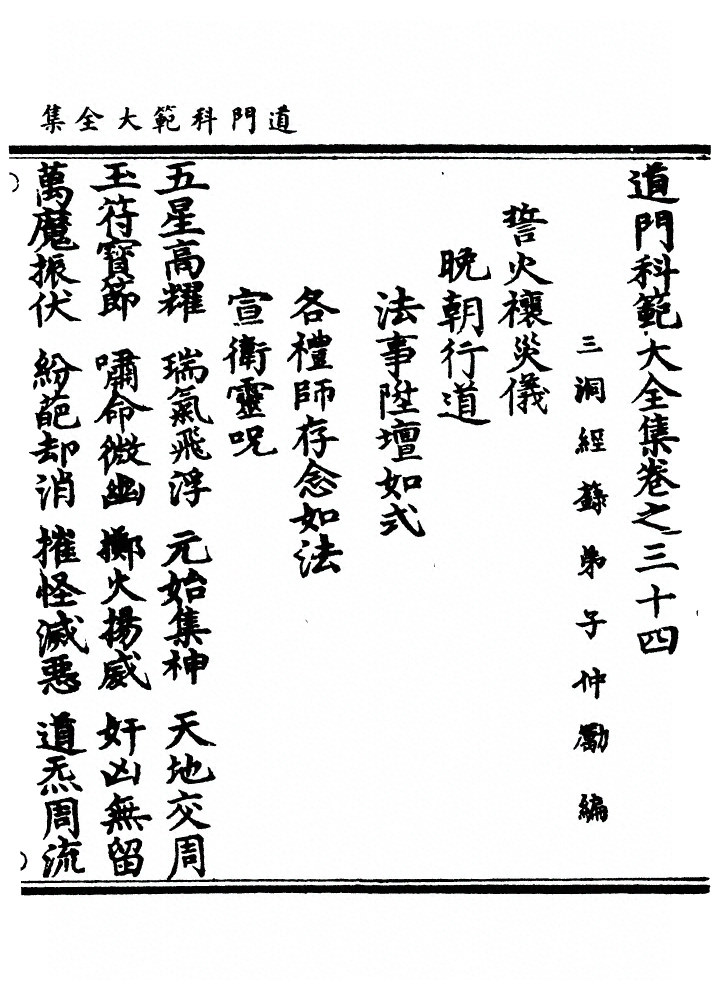 道門科範大全集
道門科範大全集卷之三十四
三洞經籙弟子仲勵編
誓火禳災儀
晚朝行道
法事陞壇如式
各禮師存念如法
宣衛靈呪
五星高耀 瑞氣飛浮 元始集神 天地交周
玉符寶節 嘯命微幽 擲火揚威 奸凶無留
萬魔振伏 紛葩却消 摧怪滅惡 道炁周流